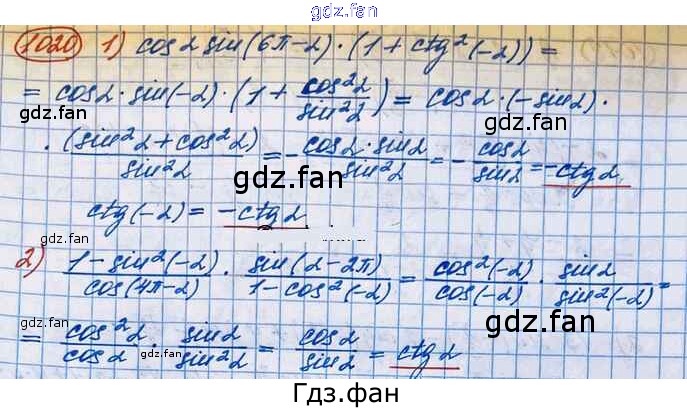 gdz.fan
1020 1) cos α sin(6π-α)·(1+ctg²(-α))=
= cosα·sin(-α)·(1+cos²α/sin²α)= cosα·(-sinα)·
gdz.fan gdz.fan
·(sin²α+cos²α)/sin²α = -cosα·sinα/sin²α = -cosα/sinα = -ctgα
gdz.fan
ctg(-α)= -ctgα
gdz.fan
2) (1-sin²(-α))/cos(4π-α) · sin(α-2π)/(1-cos²(-α)) = cos²(-α)/cos(-α) · sinα/sin²(-α) =
gdz.fan
= cos²α/cosα · sinα/sin²α = cosα/sinα = ctgα
gdz.fan gdz.fan
Гдз.фан